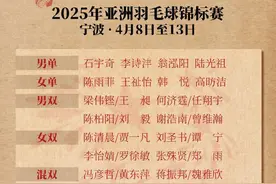 2025年亚洲羽毛球锦标赛
宁波·4月8日至13日
男单 石宇奇 李诗沣 翁泓阳 陆光祖
女单 陈雨菲 王祉怡 韩 悦 高昉洁
男双 梁伟铿/王 昶 何济霆/任翔宇
陈柏阳/刘 毅 谢浩南/曾维瀚
女双 陈清晨/贾一凡 刘圣书/谭 宁
李怡婧/罗徐敏 张殊贤/郑 雨
混双 冯彦哲/黄东萍 蒋振邦/魏雅欣